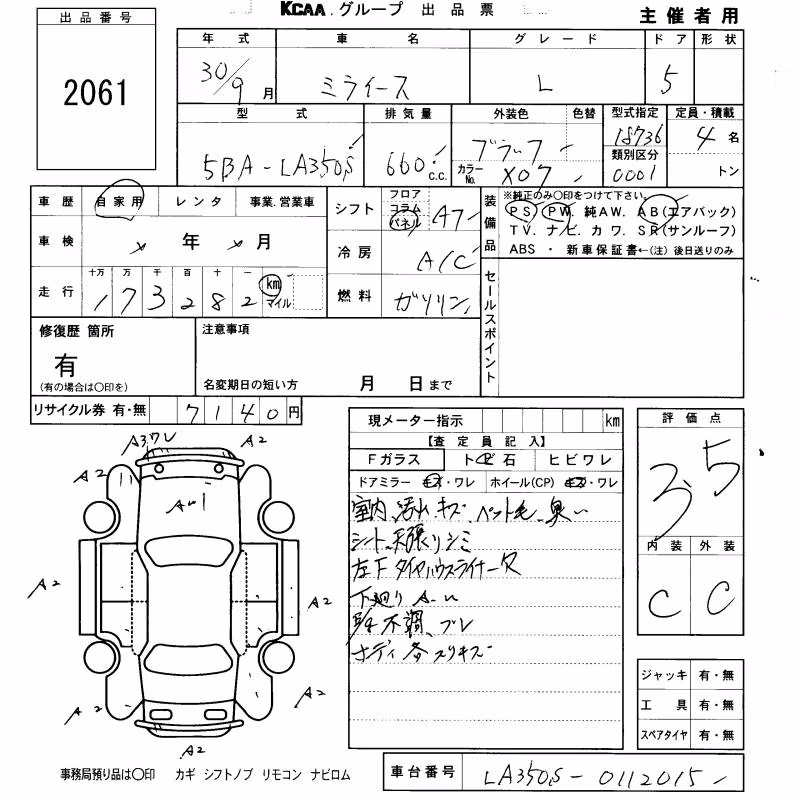 KCAA.グループ 出品票
主催者用
出品番号
2061
年式 車名 グレード ドア 形状
30/9月 ミライース L 5
型式 排気量 外装色 色替 型式指定 定員・積載
5BA-LA350S 660 c.c. ブラック カラーNo. X07 18736 4名
類別区分
0001 トン
車歴 自家用 レンタ 事業.営業車
車検 年 月
走行 十万 万 千 百 十 一
173282 km マイル
シフト フロア コラム パネル AT
冷房 A/C
燃料 ガソリン
装備品
※純正のみ○印をつけて下さい。
PS. PW. 純AW. AB(エアバック)
TV. ナビ. カワ. SR(サンルーフ)
ABS ・ 新車保証書←(注) 後日送りのみ
セールスポイント
修復歴 箇所
有
(有の場合は○印を)
注意事項
名変期日の短い方 月 日まで
リサイクル券 有・無 7140円
現メーター指示 km
【査定員記入】
Fガラス トビ石 ヒビワレ
ドアミラー キズ・ワレ ホイール(CP) キズ・ワレ
室内 汚れ キズ ペット毛 臭い
シート 天張りシミ
左F タイヤハウスライナー欠
下廻り
不調、ブレ
ボディ 各 スリキズ
評価点
3.5
内装 外装
C C
ジャッキ 有・無
工具 有・無
スペアタイヤ 有・無
A3ワレ A2
A2 A2
A2 A2
A2 A2
A2
事務局預り品は○印 カギ シフトノブ リモコン ナビロム
車台番号 LA350S-0112015